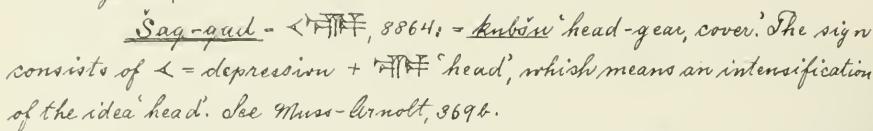 Šag-gud - 𒌋𒊕, 8864; = kubšu 'head-gear, cover'. The sign
consists of 𒌋 = depression + 𒊕 'head', which means an intensification
of the idea 'head'. See Muss-Arnolt, 369b.